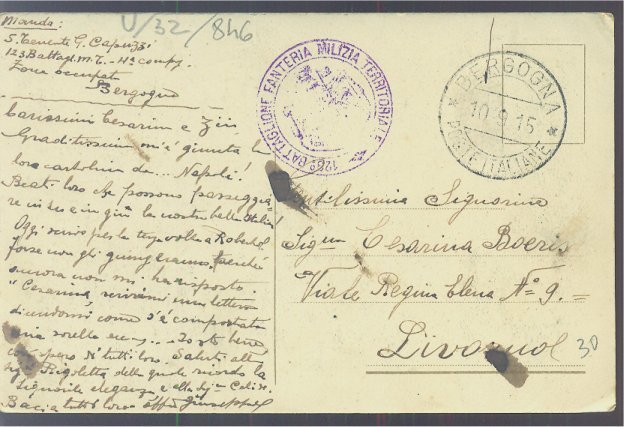 V/32/846
Manda:
S. Tenente G. Capuzzi
123 Battagl. M.T. - 4ª comp.
Zona occupata
Bergogna
Carissimi Cesarina e Zii
Graditissima mi è giunta la
loro cartolina da... Napoli!
Beati loro che possono passeggia
re in su e in giù la nostra bella Italia!
Oggi scrivo per la terza volta a
forse non gli giungeranno perché
ancora non mi ha risposto.
"Cesarina scrivimi una lettera
dicendomi come s'è comportata
mia sorella ecc... Io sto bene
così spero di tutti loro. Saluti alla
Rigoletta della quale ricordo la
signorile eleganza e alla
Baci a tutti loro aff.
BATTAGLIONE FANTERIA MILIZIA TERRITORIALE
BERGOGNA
10.9.15
* POSTE ITALIANE *
Gentilissima Signorina
Sigⁿᵃ Cesarina Boeris
Viale Regina Elena Nº 9.=
Livorno
30